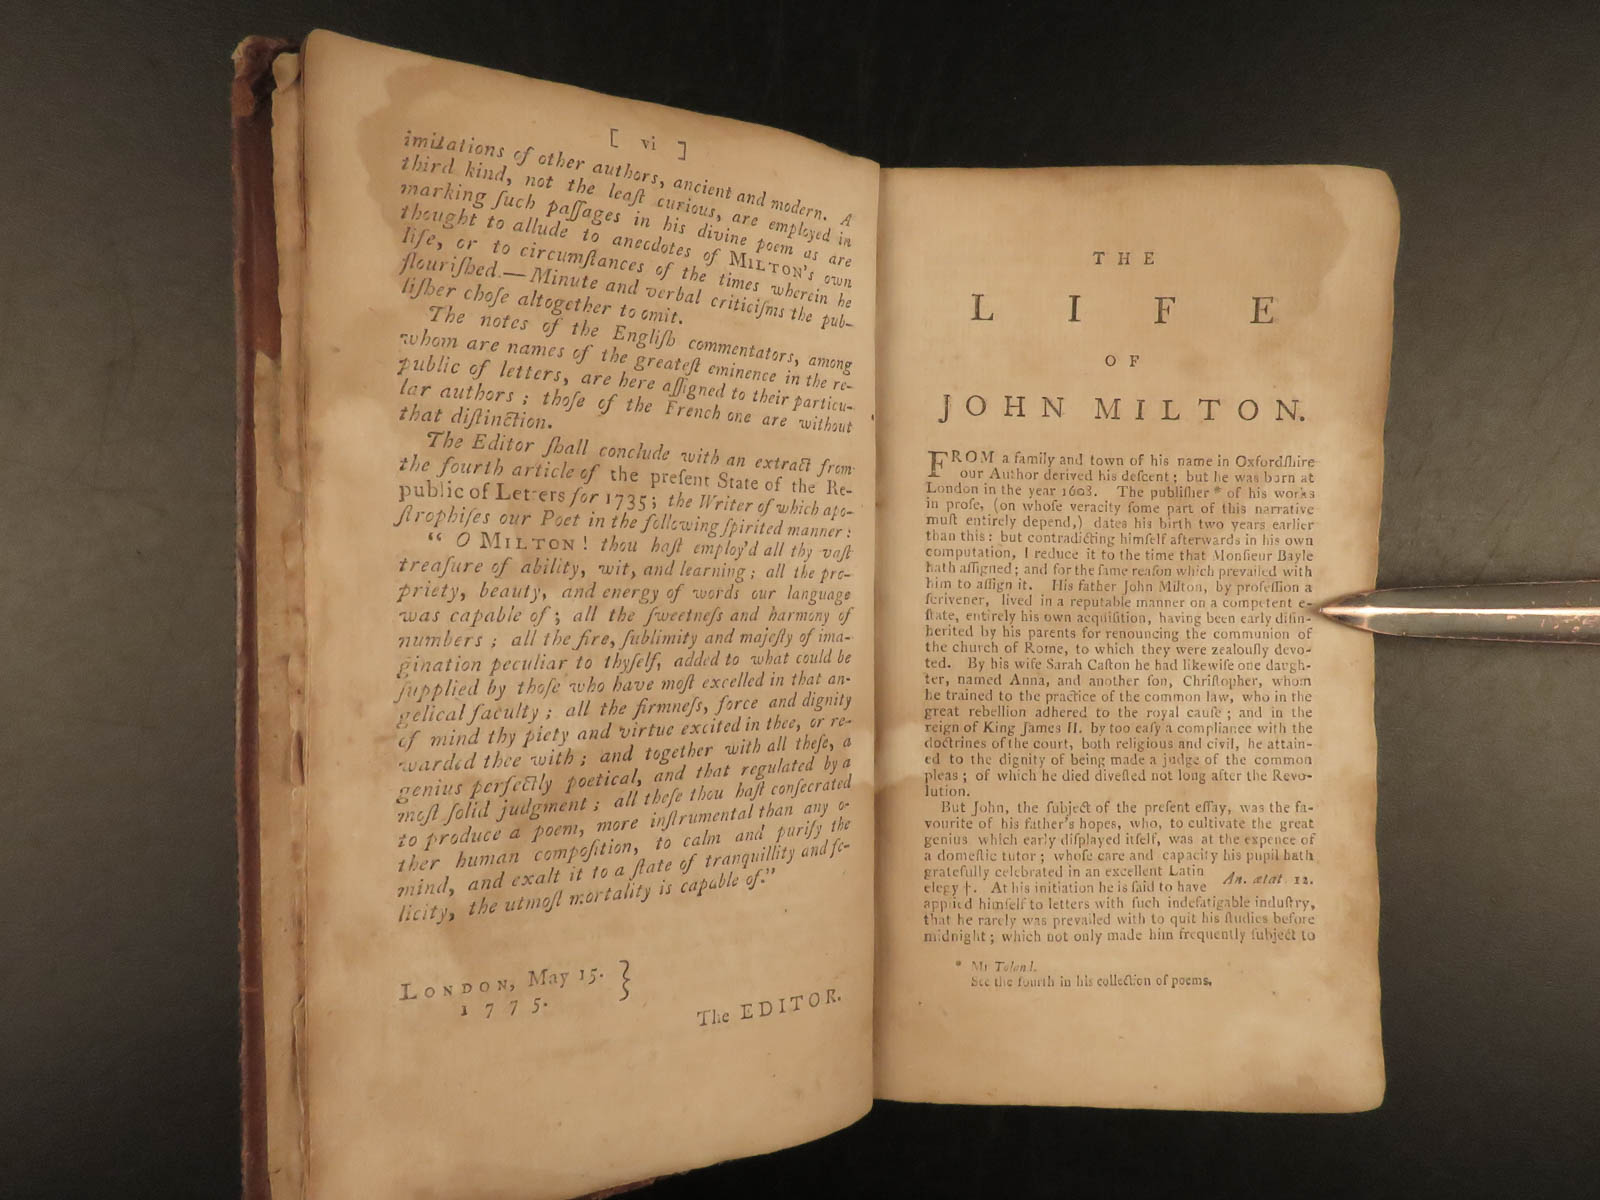 [ vi ]
imitations of other authors, ancient and modern. A
third kind, not the leaſt curious, are employed in
marking ſuch paſſages in his divine poem as are
thought to allude to anecdotes of MILTON's own
life, or to circumſtances of the times wherein he
flouriſhed.—Minute and verbal criticiſms the pub-
liſher choſe altogether to omit.
The notes of the Engliſh commentators, among
whom are names of the greateſt eminence in the re-
public of letters, are here aſſigned to their particu-
lar authors; thoſe of the French one are without
that diſtinction.
The Editor ſhall conclude with an extract from
the fourth article of the preſent State of the Re-
public of Letters for 1735; the Writer of which apo-
ſtrophiſes our Poet in the following ſpirited manner:
“ O MILTON! thou haſt employ'd all thy vaſt
treaſure of ability, wit, and learning; all the pro-
priety, beauty, and energy of words our language
was capable of; all the ſweetneſs and harmony of
numbers; all the fire, ſublimity and majeſty of ima-
gination peculiar to thyſelf, added to what could be
ſupplied by thoſe who have moſt excelled in that an-
gelical faculty; all the firmneſs, force and dignity
of mind thy piety and virtue excited in thee, or re-
warded thee with; and together with all theſe, a
genius perfectly poetical, and that regulated by a
moſt ſolid judgment; all theſe thou haſt conſecrated
to produce a poem, more inſtrumental than any o-
ther human compoſition, to calm and purify the
mind, and exalt it to a ſtate of tranquillity and fe-
licity, the utmoſt mortality is capable of.”
LONDON, May 15. }
1775.
The EDITOR.
THE
LIFE
OF
JOHN MILTON.
FROM a family and town of his name in Oxfordſhire
our Author derived his deſcent; but he was born at
London in the year 1608. The publiſher * of his works
in proſe, (on whoſe veracity ſome part of this narrative
muſt entirely depend,) dates his birth two years earlier
than this: but contradicting himſelf afterwards in his own
computation, I reduce it to the time that Monſieur Bayle
hath aſſigned; and for the ſame reaſon which prevailed with
him to aſſign it. His father John Milton, by profeſſion a
ſcrivener, lived in a reputable manner on a competent e-
ſtate, entirely his own acquiſition, having been early diſin-
herited by his parents for renouncing the communion of
the church of Rome, to which they were zealouſly devo-
ted. By his wife Sarah Caſton he had likewiſe one daugh-
ter, named Anna, and another ſon, Chriſtopher, whom
he trained to the practice of the common law, who in the
great rebellion adhered to the royal cauſe; and in the
reign of King James II. by too eaſy a compliance with the
doctrines of the court, both religious and civil, he attain-
ed to the dignity of being made a judge of the common
pleas; of which he died diveſted not long after the Revo-
lution.
But John, the ſubject of the preſent eſſay, was the fa-
vourite of his father's hopes, who, to cultivate the great
genius which early diſplayed itſelf, was at the expence of
a domeſtic tutor; whoſe care and capacity his pupil hath
gratefully celebrated in an excellent Latin
elegy †. At his initiation he is ſaid to have An. ætat. 12.
applied himſelf to letters with ſuch indefatigable induſtry,
that he rarely was prevailed with to quit his ſtudies before
midnight; which not only made him frequently ſubject to
* Mr Toland.
See the fourth in his collection of poems.